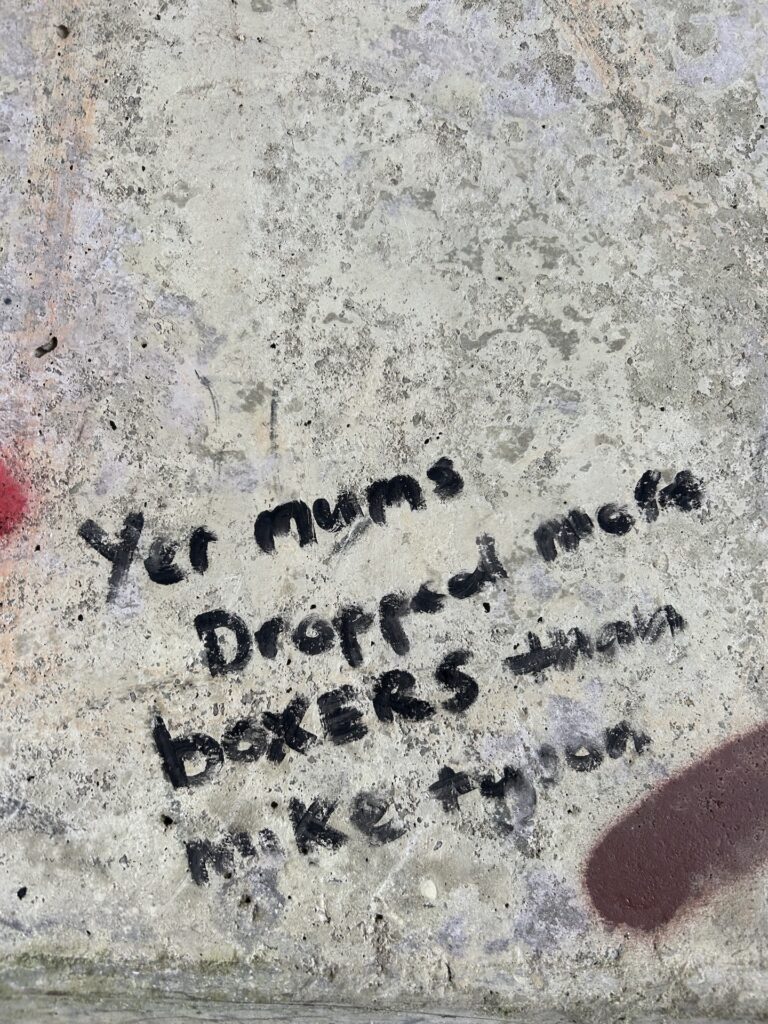 Yer mums
Dropped more
boxERS than
mike tyson